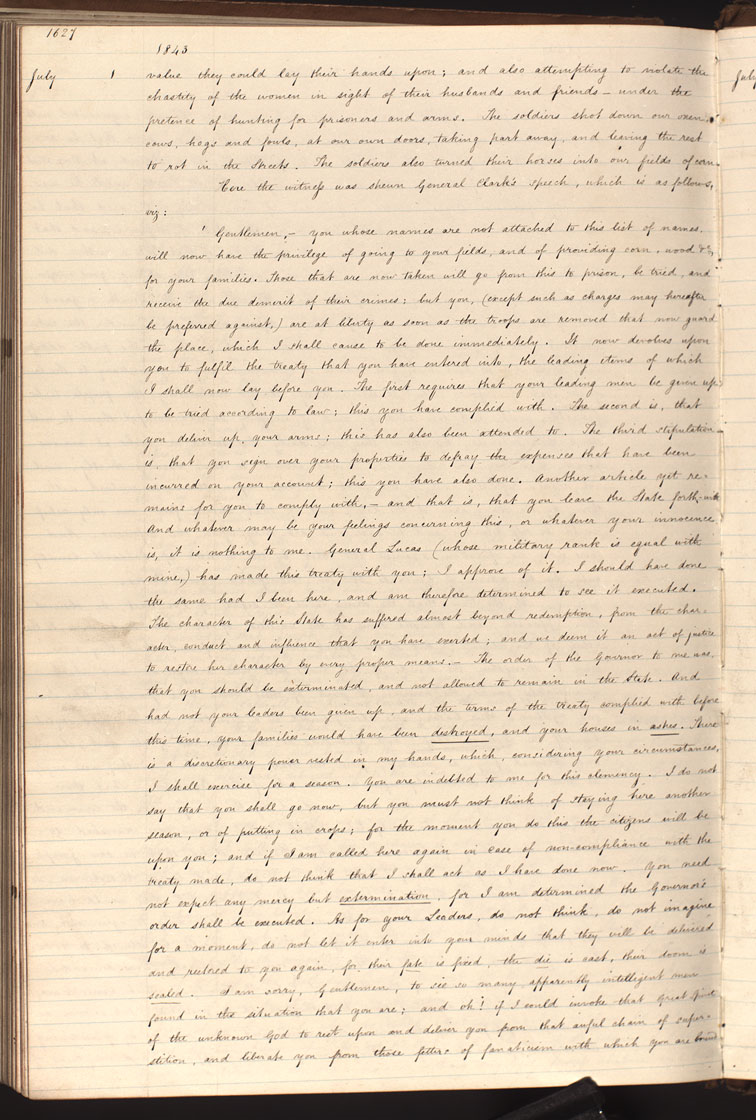 1627
1843
July 1 value they could lay their hands upon; and also attempting to violate the
chastity of the women in sight of their husbands and friends — under the
pretence of hunting for prisoners and arms. The soldiers shot down our oxen,
cows, hogs and fowls, at our own doors, taking part away, and leaving the rest
to rot in the Streets. The soldiers also turned their horses into our fields of corn.
Here the witness was shewn General Clark's speech, which is as follows,
viz:
' Gentlemen, — you whose names are not attached to this list of names.
will now have the privilege of going to your fields, and of providing corn, wood &c,
for your families. Those that are now taken will go from this to prison, be tried, and
receive the due demerit of their crimes; but you, (except such as charges may hereafter
be preferred against,) are at liberty as soon as the troops are removed that now guard
the place, which I shall cause to be done immediately. It now devolves upon
you to fulfil the treaty that you have entered into, the leading items of which
I shall now lay before you. The first requires that your leading men be given up
to be tried according to law; this you have complied with. The second is, that
you deliver up your arms; this has also been attended to. The third stipulation
is, that you sign over your properties to defray the expenses that have been
incurred on your account; this you have also done. Another article yet re-
mains for you to comply with, — and that is, that you leave the State forthwith
And whatever may be your feelings concerning this, or whatever your innocence
is, it is nothing to me. General Lucas (whose military rank is equal with
mine,) has made this treaty with you; I approve of it. I should have done
the same had I been here, and am therefore determined to see it executed.
The character of this State has suffered almost beyond redemption, from the char-
acter, conduct and influence that you have exerted; and we deem it an act of justice
to restore her character by every proper means. — The order of the Governor to me was,
that you should be exterminated, and not allowed to remain in the State. And
had not your leaders been given up, and the terms of the treaty complied with before
this time, your families would have been destroyed, and your houses in ashes. There
is a discretionary power vested in my hands, which, considering your circumstances,
I shall exercise for a season. You are indebted to me for this clemency. I do not
say that you shall go now, but you must not think of staying here another
season, or of putting in crops; for the moment you do this the citizens will be
upon you; and if I am called here again in case of non-compliance with the
treaty made, do not think that I shall act as I have done now. You need
not expect any mercy but extermination, for I am determined the Governor's
order shall be executed. As for your Leaders, do not think, do not imagine
for a moment, do not let it enter into your minds that they will be delivered
and restored to you again, for their fate is fixed, the die is cast, their doom is
sealed. I am sorry, Gentlemen, to see so many apparently intelligent men
found in the situation that you are; and oh! if I could invoke that Great Spirit
of the unknown God to rest upon and deliver you from that awful chain of super-
stition, and liberate you from those fetters of fanaticism with which you are bound
July